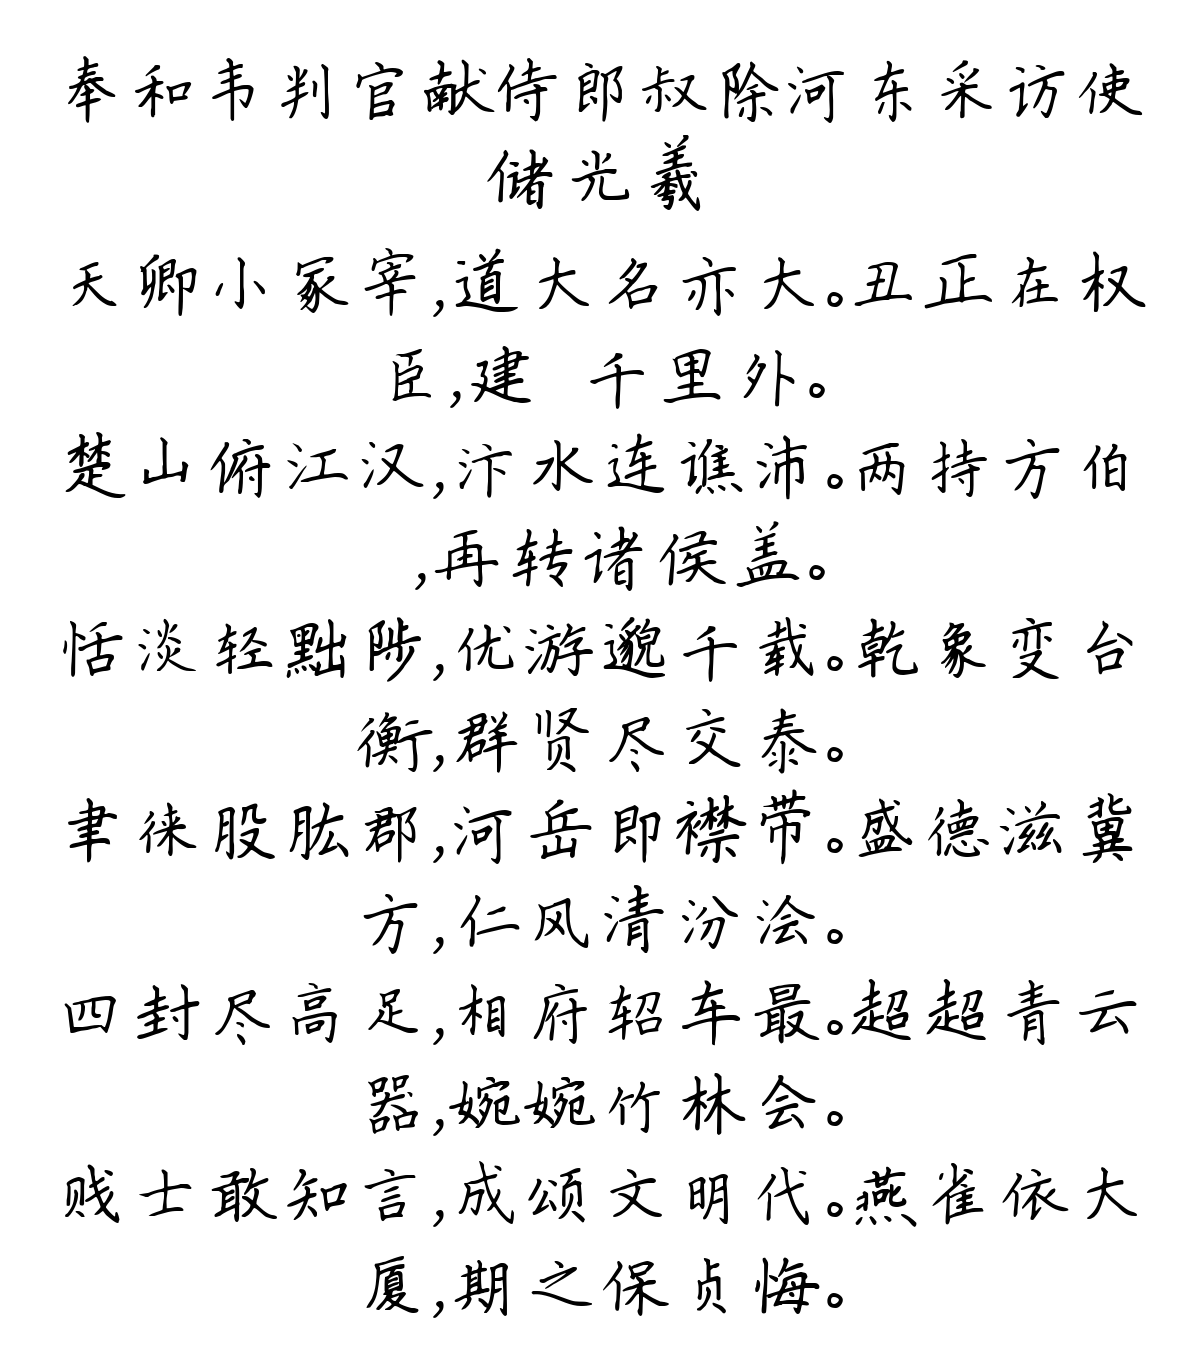 奉和韦判官献侍郎叔除河东采访使
储光羲
天卿小冢宰,道大名亦大。丑正在权
臣,建 千里外。
楚山俯江汉,汴水连谯沛。两持方伯
,再转诸侯盖。
恬淡轻黜陟,优游邈千载。乾象变台
衡,群贤尽交泰。
聿徕股肱郡,河岳即襟带。盛德滋冀
方,仁风清汾浍。
四封尽高足,相府轺车最。超超青云
器,婉婉竹林会。
贱士敢知言,成颂文明代。燕雀依大
厦,期之保贞悔。